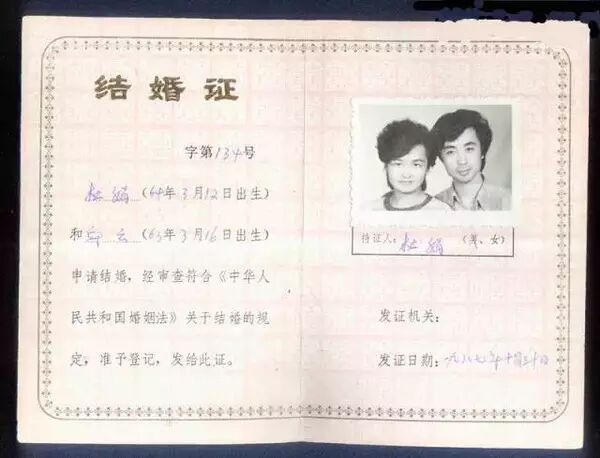 结婚证
字第134号
杜娟（64年3月12日出生）
和 云（63年3月16日出生）
申请结婚，经审查符合《中华人
民共和国婚姻法》关于结婚的规
定，准予登记，发给此证。
持证人：杜娟（男、女）
发证机关：
发证日期：一九八七年十月三十日